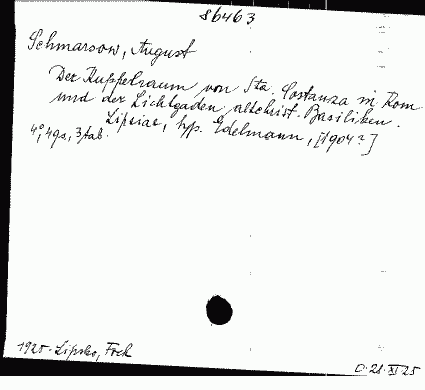 86463
Schmarsow, August
Der Kuppelraum von Sta. Costanza in Rom
und der Lichtgaden altchrist. Basiliken.
Lipsiae, typ. Edelmann, [1904?]
4°, 49s, 3 tab.
1925. Lipsko, Fock
D. 21. XI 25